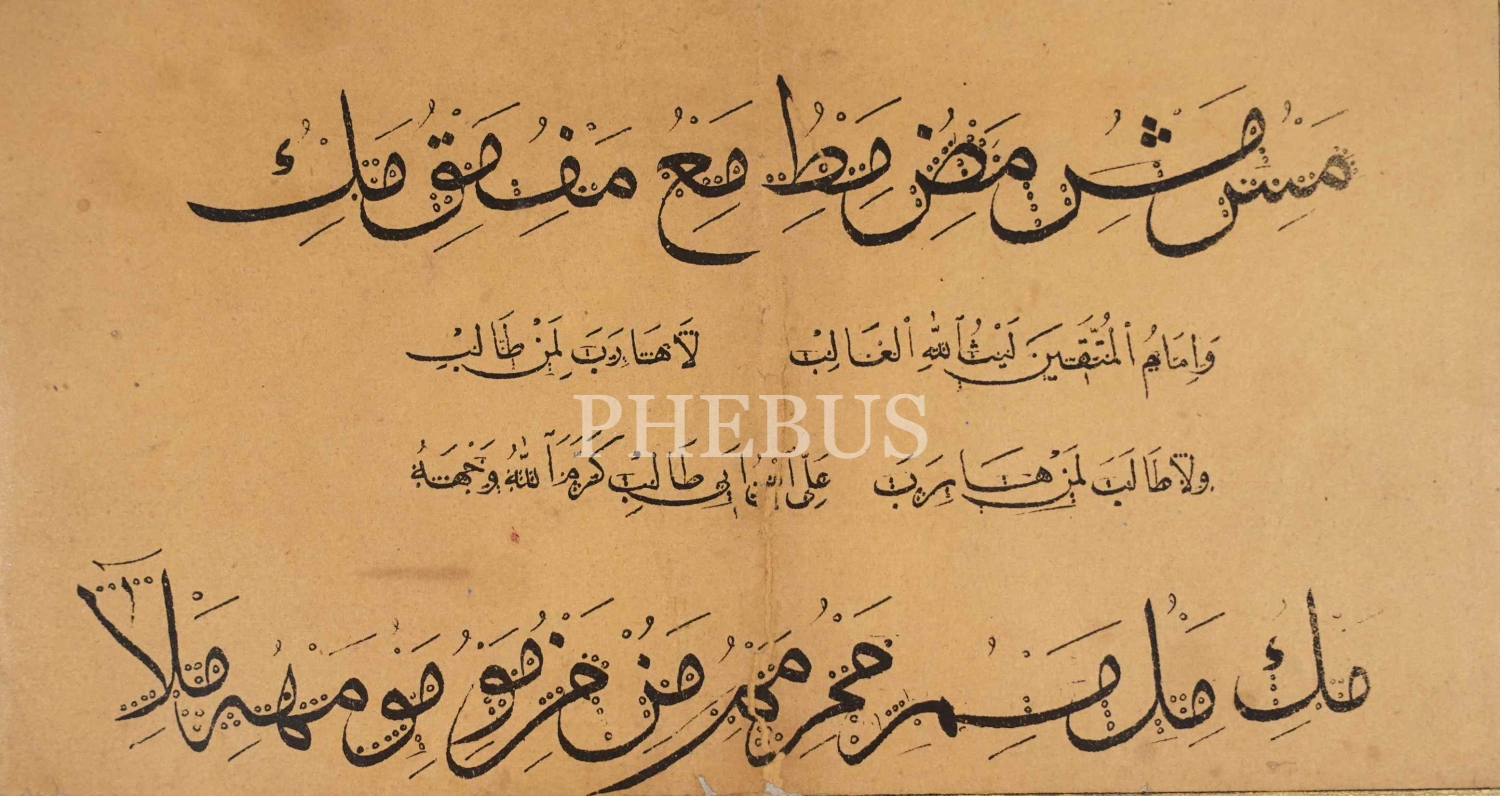 مس مش مض مط مع مف مق مك
وامام المتقين ليث الله الغالب لا هارب لمن طالب
PHEBUS
ولا طالب لمن هارب علي ابن ابي طالب كرم الله وجهه
مك مل مم من مو مه ملا